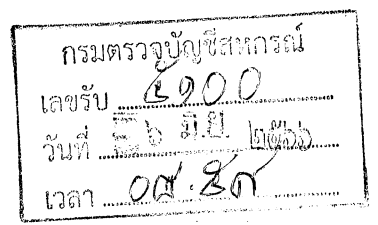 กรมตรวจบัญชีสหกรณ์
เลขรับ ๕๑๐๐
วันที่ ๖ มิ.ย. ๒๕๖๖
เวลา ๐๙.๕๙